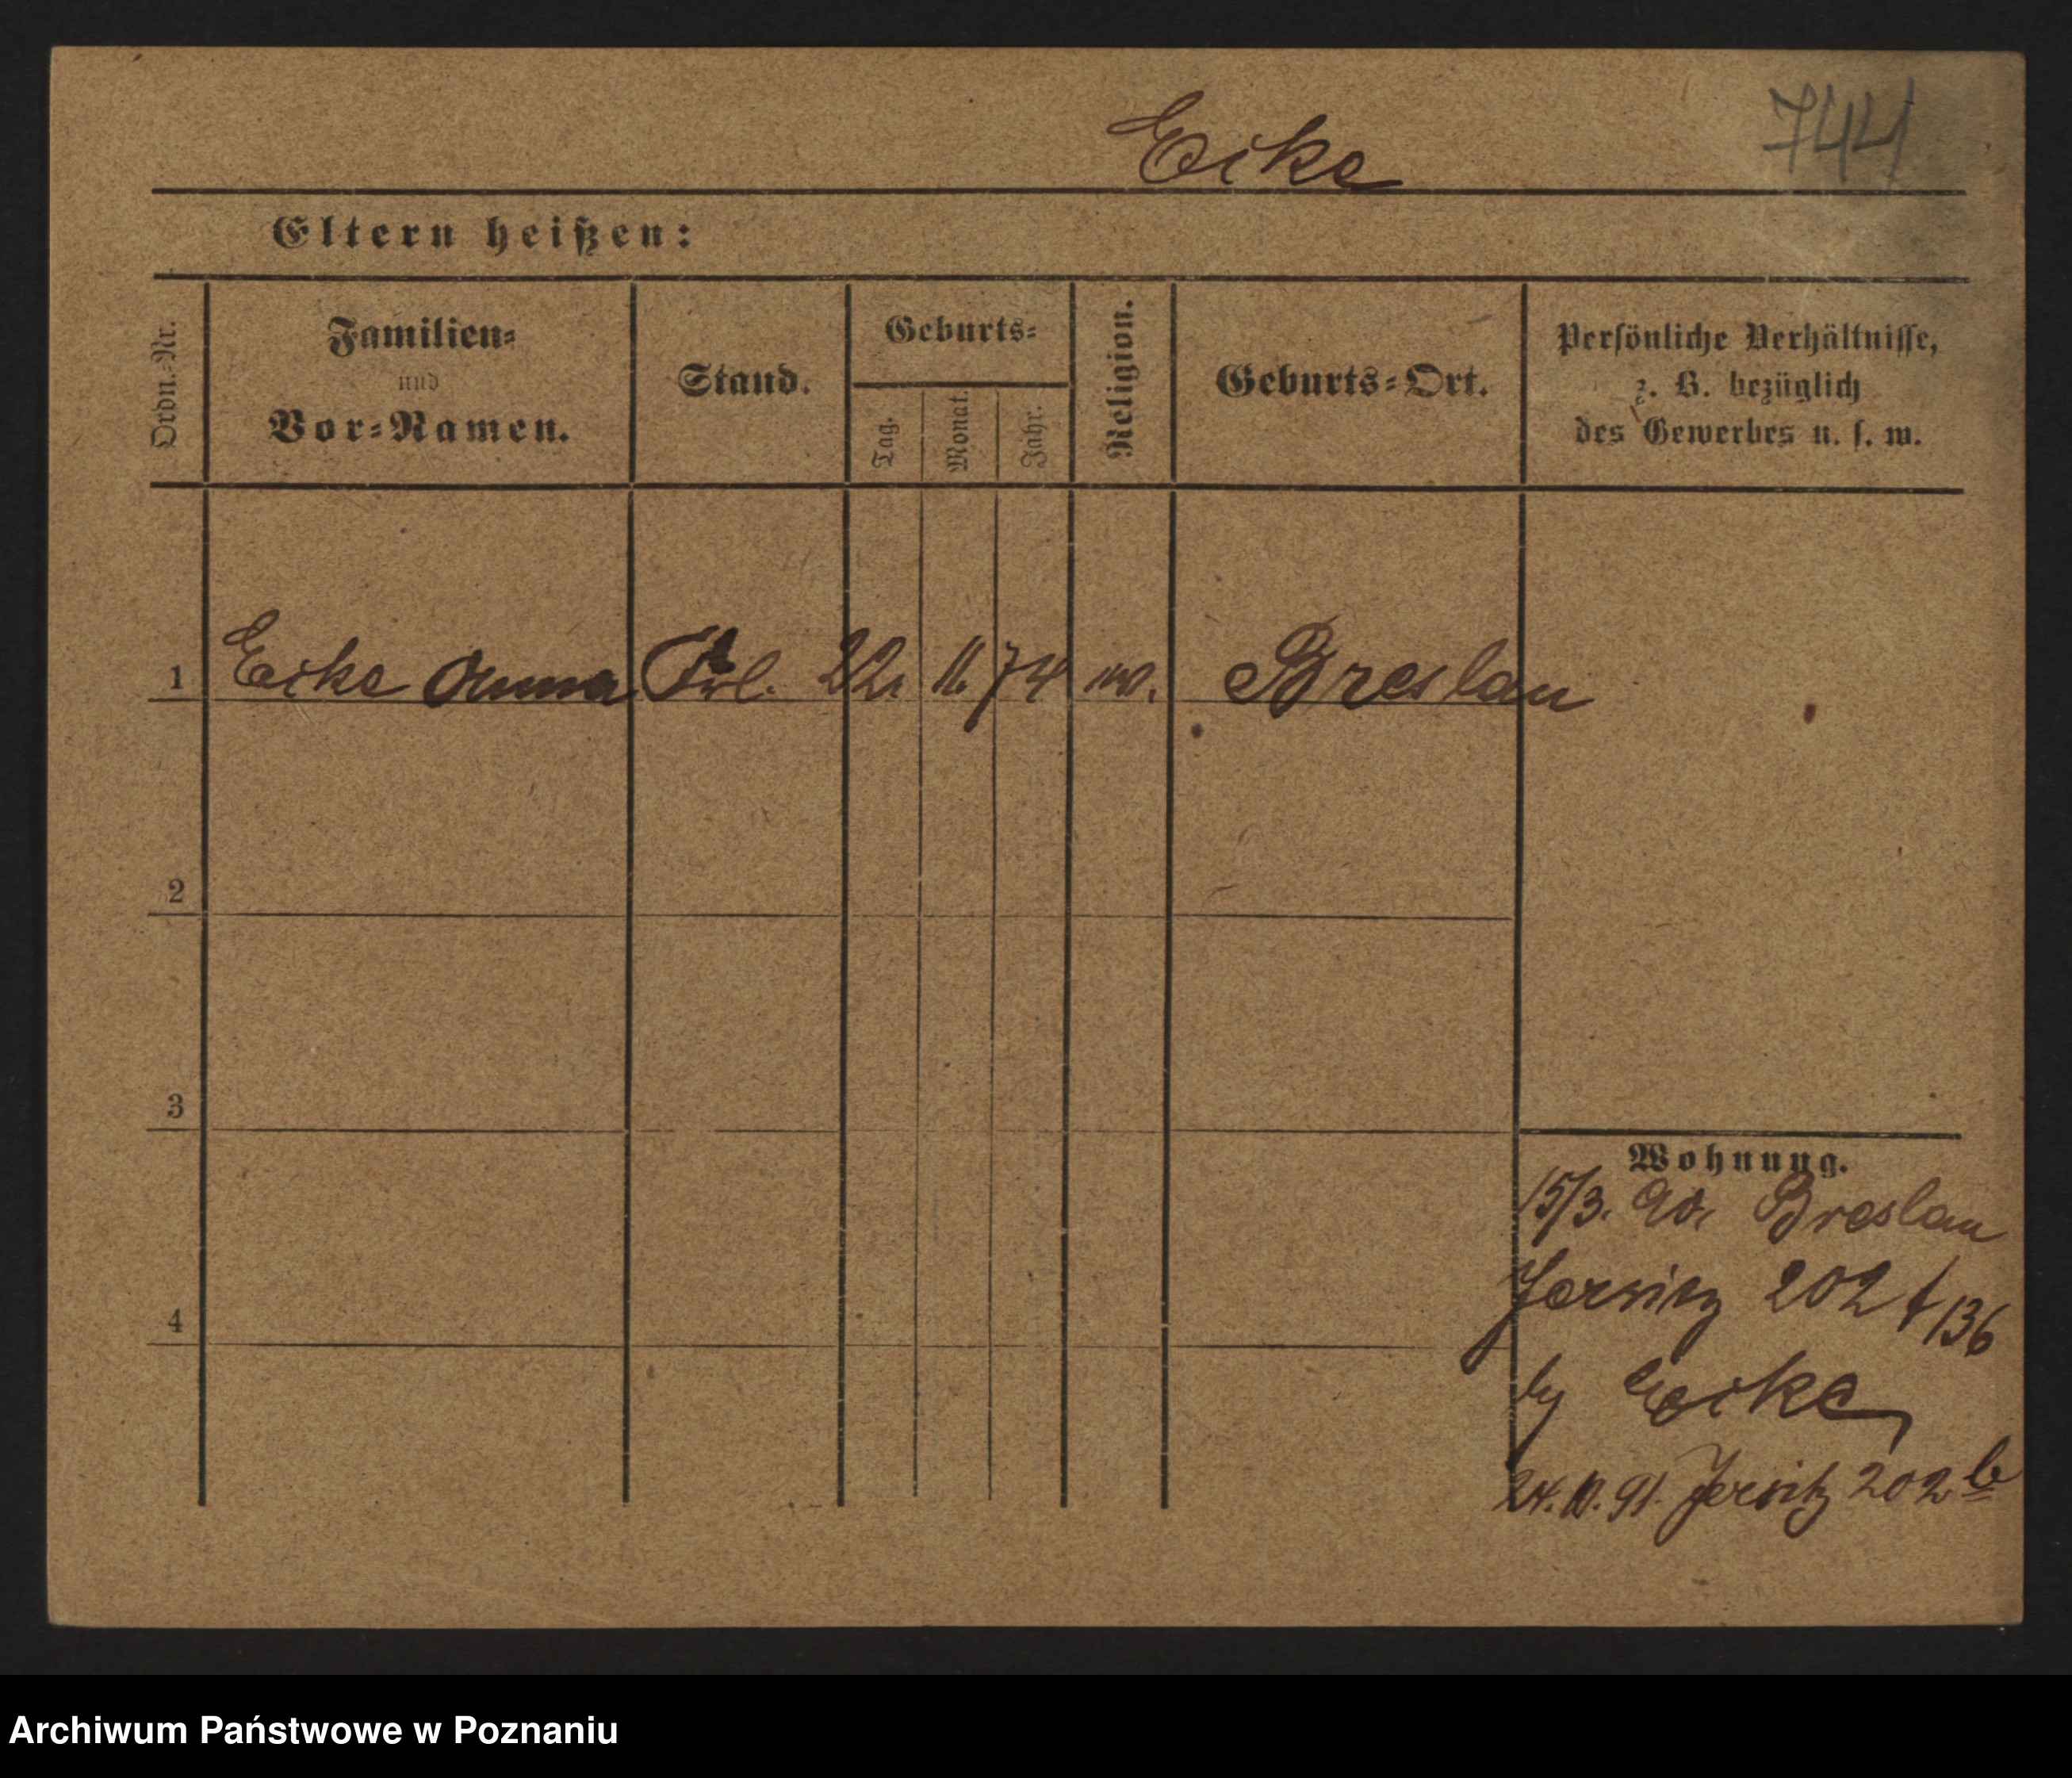 Ecke
744
Eltern heißen:
Ordn.-Nr.
Familien-
und
Vor-Namen.
Stand.
Geburts-
Tag.
Monat.
Jahr.
Religion.
Geburts-Ort.
Persönliche Verhältnisse,
z. B. bezüglich
des Gewerbes u. s. w.
1 Ecke Anna Frl. 22. 11. 74 Breslau
2
3
4
Wohnung.
15/3. 90. Breslau
Jersitz 202 f 136
by Ecke
24.10.91. Jersitz 202 b
Archiwum Państwowe w Poznaniu